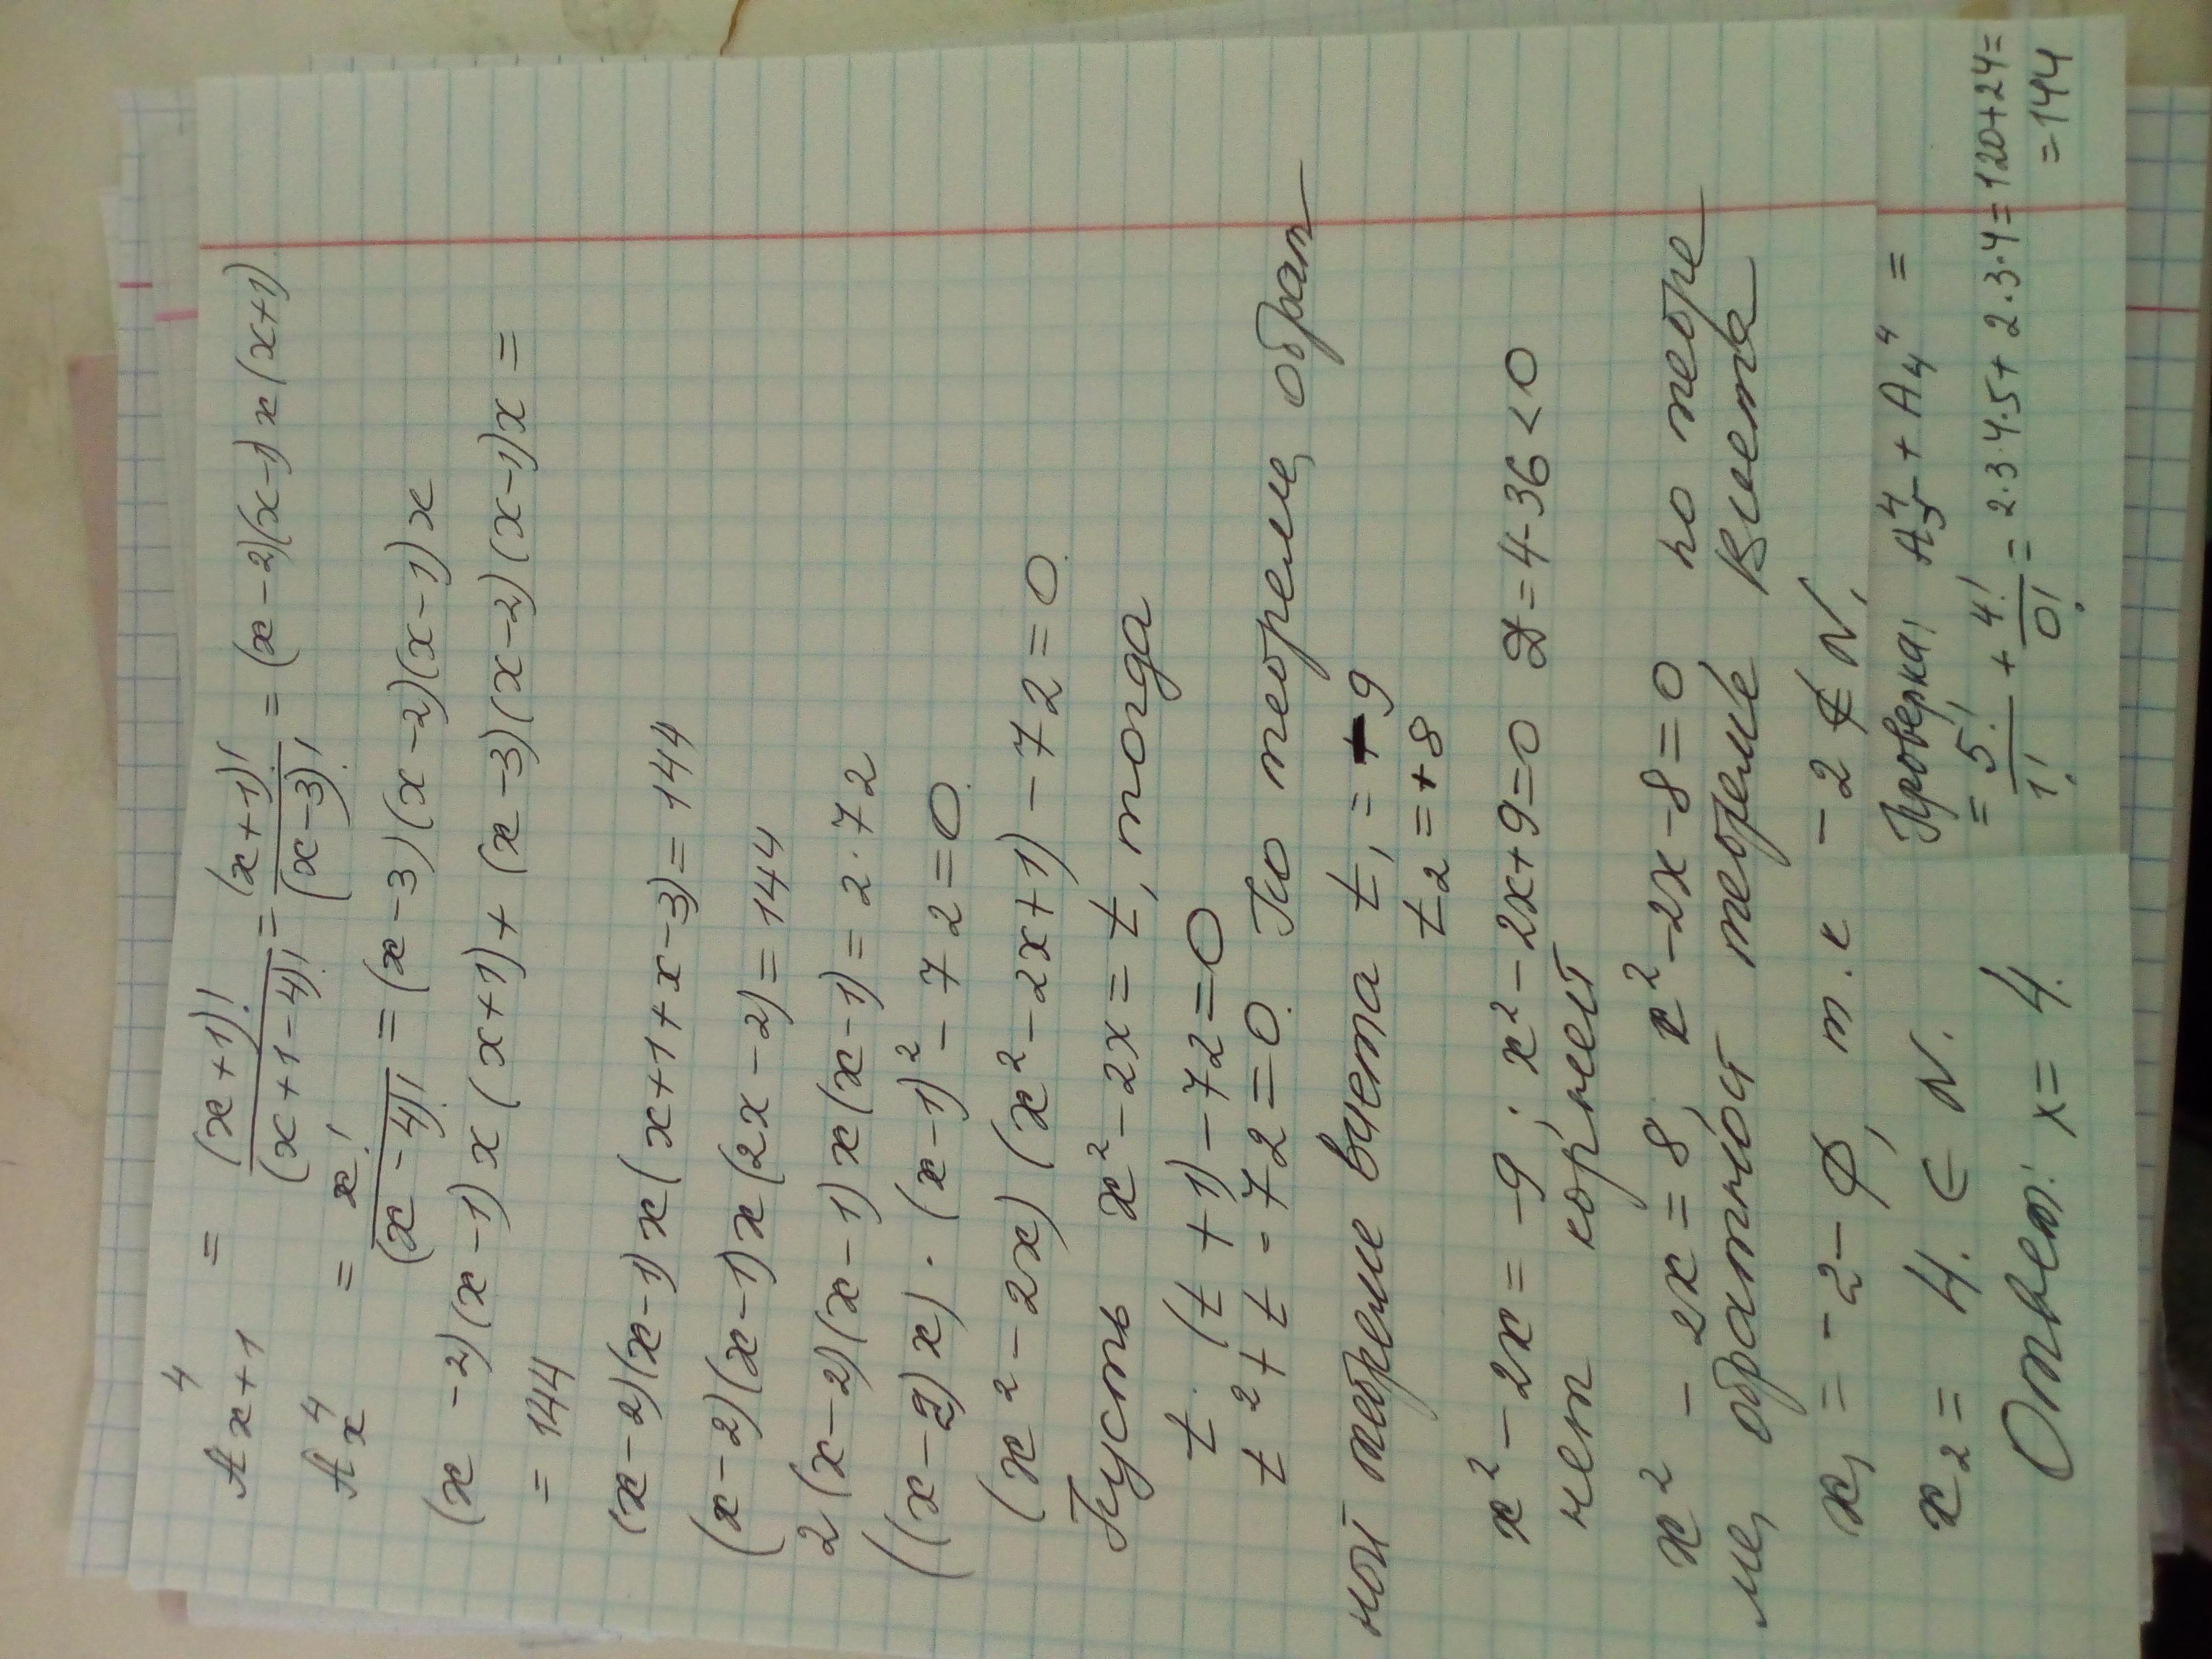 A⁴ₓ₊₁ = (x+1)!/(x+1-4)! = (x+1)!/(x-3)! = (x-2)(x-1)x(x+1)
A⁴ₓ = x!/(x-4)! = (x-3)(x-2)(x-1)x
(x-2)(x-1)x(x+1)+(x-3)(x-2)(x-1)x=
= 144
(x-2)(x-1)x(x+1+x-3)=144
(x-2)(x-1)x(2x-2)=144
2(x-2)(x-1)x(x-1)=2·72
((x-2)x)·(x-1)²-72=0
(x²-2x)(x²-2x+1)-72=0
Пусть x²-2x=t, тогда
t·(t+1)-72=0
t²+t-72=0. По теореме, обрат
ной теореме Виета t₁=-9
t₂=+8
x²-2x=-9; x²-2x+9=0 D=4-36<0
нет корней
x²-2x=8, x²-2x-8=0 по теоре
ме, обратной теореме Виета
x₁=-2-∅, т.к -2∉N,
x₂=4.∈N.
Ответ: x=4.
Проверка: A₅⁴+A₄⁴=
=5!/1!+4!/0!=2·3·4·5+2·3·4=120+24=
=144